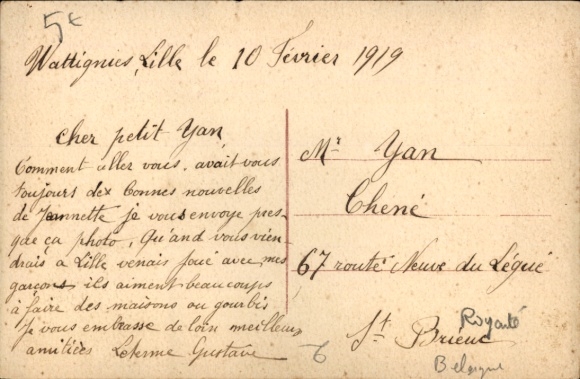 5€
Wattignies, Lille le 10 Février 1919
Cher petit Yan
Comment aller vous. avait vous
toujours dex bonnes nouvelles
de Jeannette je vous envoye pres-
que ça photo, Qu'and vous vien-
drais a Lille venais joué avec mes
garçons ils aiment beaucoups
à faire des maisons ou gourbis
Je vous embrasse de loin meilleurs
amitiées Gustave
Mr Yan
Chené
67 route Neuve du Légué
St Brieuc
Royauté
Belgique